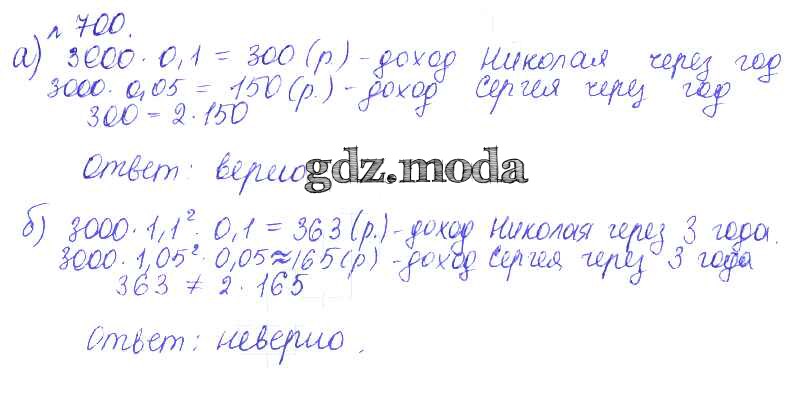 № 700.
а) 3000 · 0,1 = 300 (р.) - доход Николая через год
3000 · 0,05 = 150 (р.) - доход Сергея через год
300 = 2 · 150
Ответ: верно.
gdz.moda
б) 3000 · 1,1² · 0,1 = 363 (р.) - доход Николая через 3 года.
3000 · 1,05² · 0,05 ≈ 165 (р) - доход Сергея через 3 года
363 ≠ 2 · 165
Ответ: неверно.